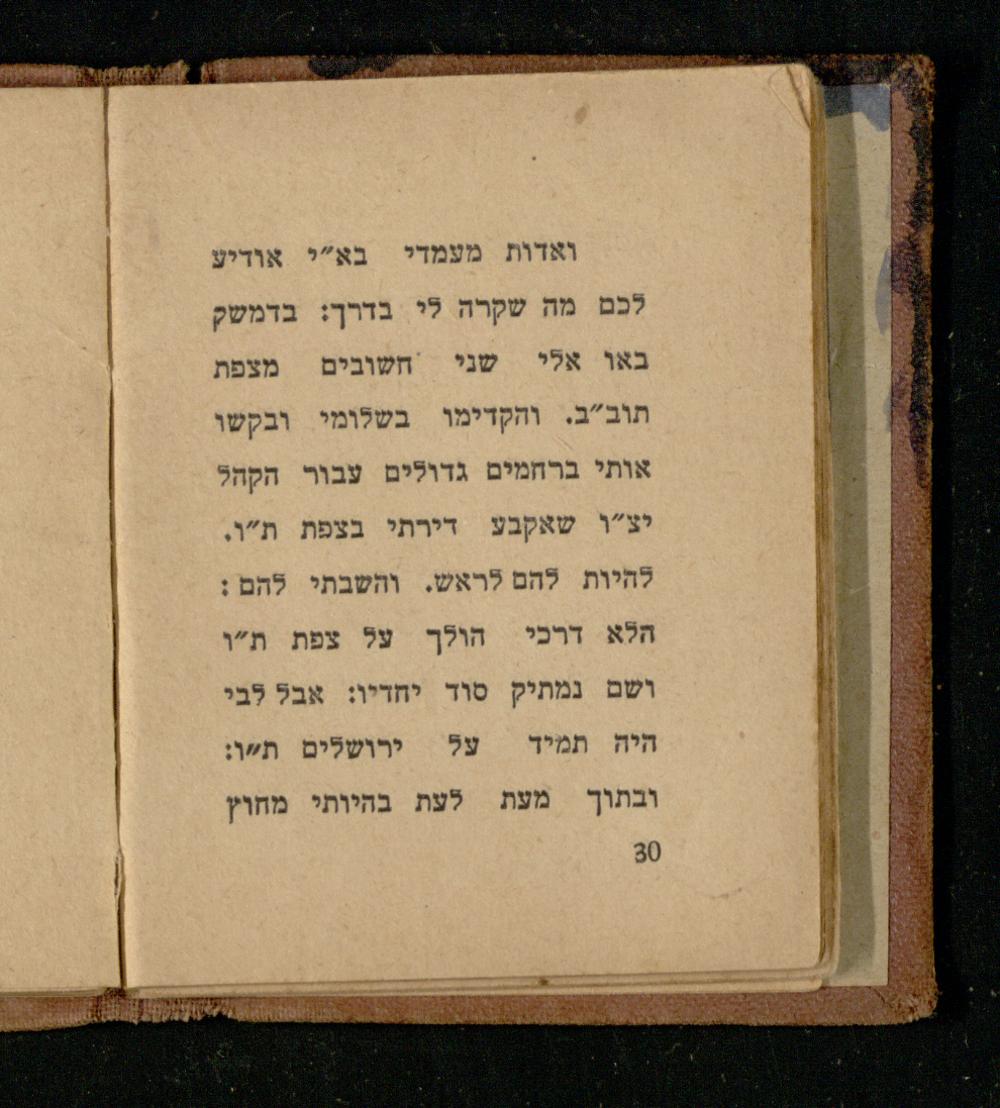 ואדות מעמדי בא״י אודיע
לכם מה שקרה לי בדרך: בדמשק
באו אלי שני חשובים מצפת
תוב״ב. והקדימו בשלומי ובקשו
אותי ברחמים גדולים עבור הקהל
יצ״ו שאקבע דירתי בצפת ת״ו.
להיות להם לראש. והשבתי להם :
הלא דרכי הולך על צפת ת״ו
ושם נמתיק סוד יחדיו: אבל לבי
היה תמיד על ירושלים ת״ו:
ובתוך מעת לעת בהיותי מחוץ
30